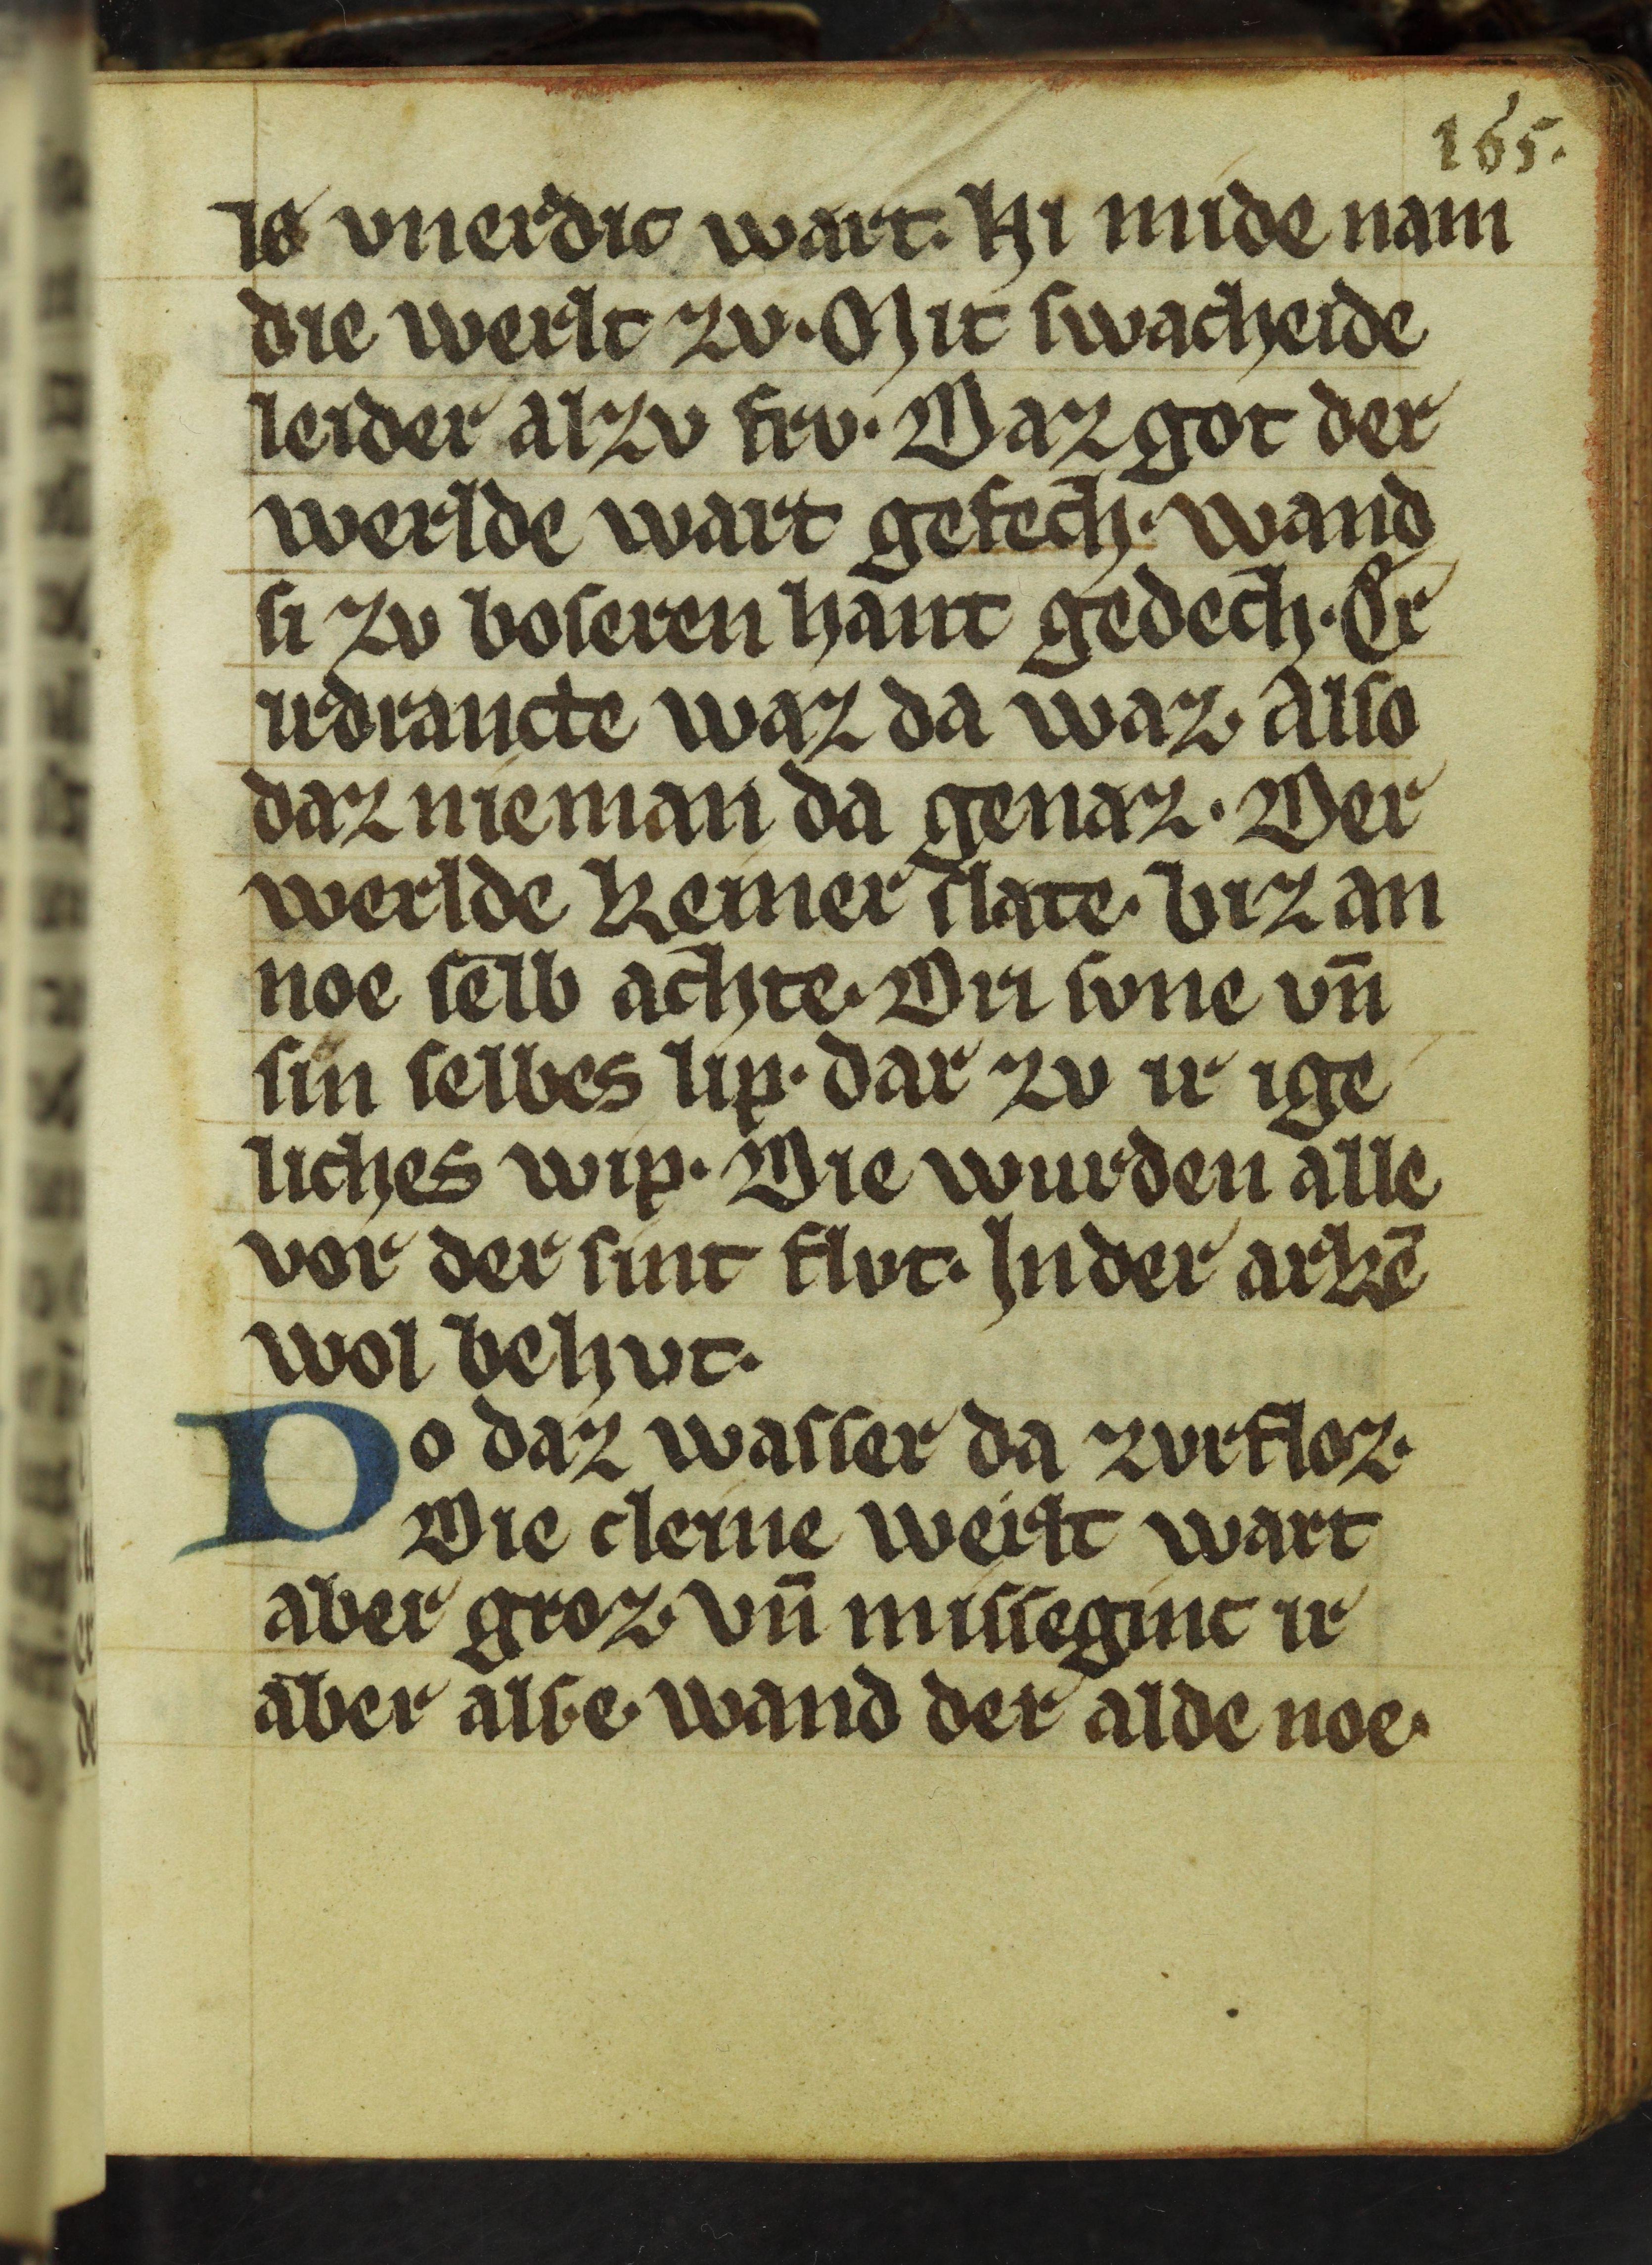 165.
is vnerdic wart. Hi mide nam
die werlt zv. Mit swacheide
leider alzv frv. Daz got der
werlde wart gefech. wand
si zv boseren hant gedech. Er
irdrancte waz da waz. Also
daz nieman da genaz. Der
werlde keiner slate. biz an
noe selb achte. Dri svne vn̄
sin selbes lip. dar zv ir ige
liches wip. Die wurden alle
vor der sint flvt. In der arkē
wol behvt.
Do daz wasser da zvrfloz.
Die cleine werlt wart
aber groz. vn̄ misseginc ir
aber alse. wand der alde noe.